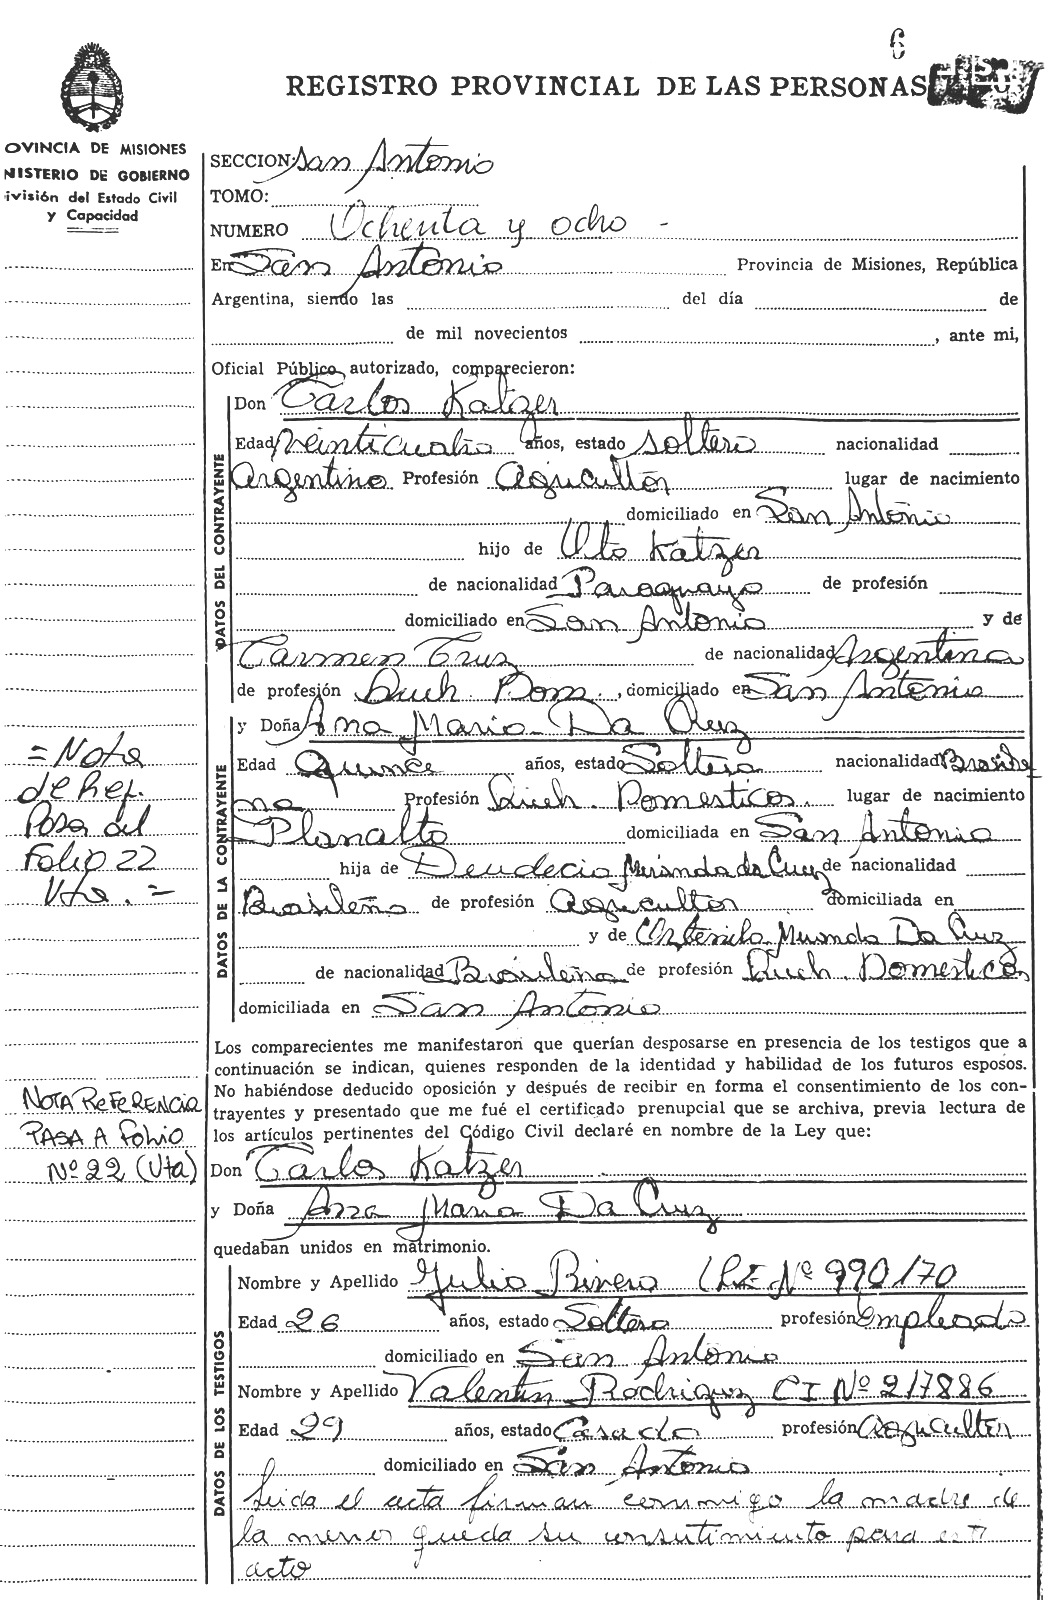 6
REGISTRO PROVINCIAL DE LAS PERSONAS
OVINCIA DE MISIONES
NISTERIO DE GOBIERNO
ivisión del Estado Civil
y Capacidad
SECCION: San Antonio
TOMO:
NUMERO Ochenta y ocho -
En San Antonio Provincia de Misiones, República
Argentina, siendo las del día de
de mil novecientos , ante mi,
Oficial Público autorizado, comparecieron:
DATOS DEL CONTRAYENTE
Don Carlos Katzer
Edad Veinticuatro años, estado soltero nacionalidad
Argentino Profesión Agricultor lugar de nacimiento
domiciliado en San Antonio
hijo de Oto Katzer
de nacionalidad Paraguayo de profesión
domiciliado en San Antonio y de
Carmen Cruz de nacionalidad Argentina
de profesión Queh. Dom. , domiciliado en San Antonio
DATOS DE LA CONTRAYENTE
y Doña Ana Maria Da Cruz
Edad Quince años, estado Soltera nacionalidad Brasile
na Profesión Queh. Domesticos. lugar de nacimiento
Planalto domiciliada en San Antonio
hija de Deudecio Miranda da Cruz de nacionalidad
Brasileño de profesión Agricultor domiciliada en
y de Miranda Da Cruz
de nacionalidad Brasileña de profesión Queh Domesticos
domiciliada en San Antonio
= Nota
de Ref.
Pasa al
Folio 22
Vta. =
Los comparecientes me manifestaron que querían desposarse en presencia de los testigos que a
continuación se indican, quienes responden de la identidad y habilidad de los futuros esposos.
No habiéndose deducido oposición y después de recibir en forma el consentimiento de los con-
trayentes y presentado que me fué el certificado prenupcial que se archiva, previa lectura de
los artículos pertinentes del Código Civil declaré en nombre de la Ley que:
NOTA REFERENCIA
PASA A FOLIO
Nº 22 (Vta)
Don Carlos Katzer
y Doña Ana Maria Da Cruz
quedaban unidos en matrimonio.
DATOS DE LOS TESTIGOS
Nombre y Apellido Julio Rivero Nº 990170
Edad 26 años, estado Soltero profesión Empleado
domiciliado en San Antonio
Nombre y Apellido Valentin Rodriguez CI Nº 217886
Edad 29 años, estado Casado profesión Agricultor
domiciliado en San Antonio
Leida el acta firman conmigo la madre de
la menor queda su consutimiento para este
acto